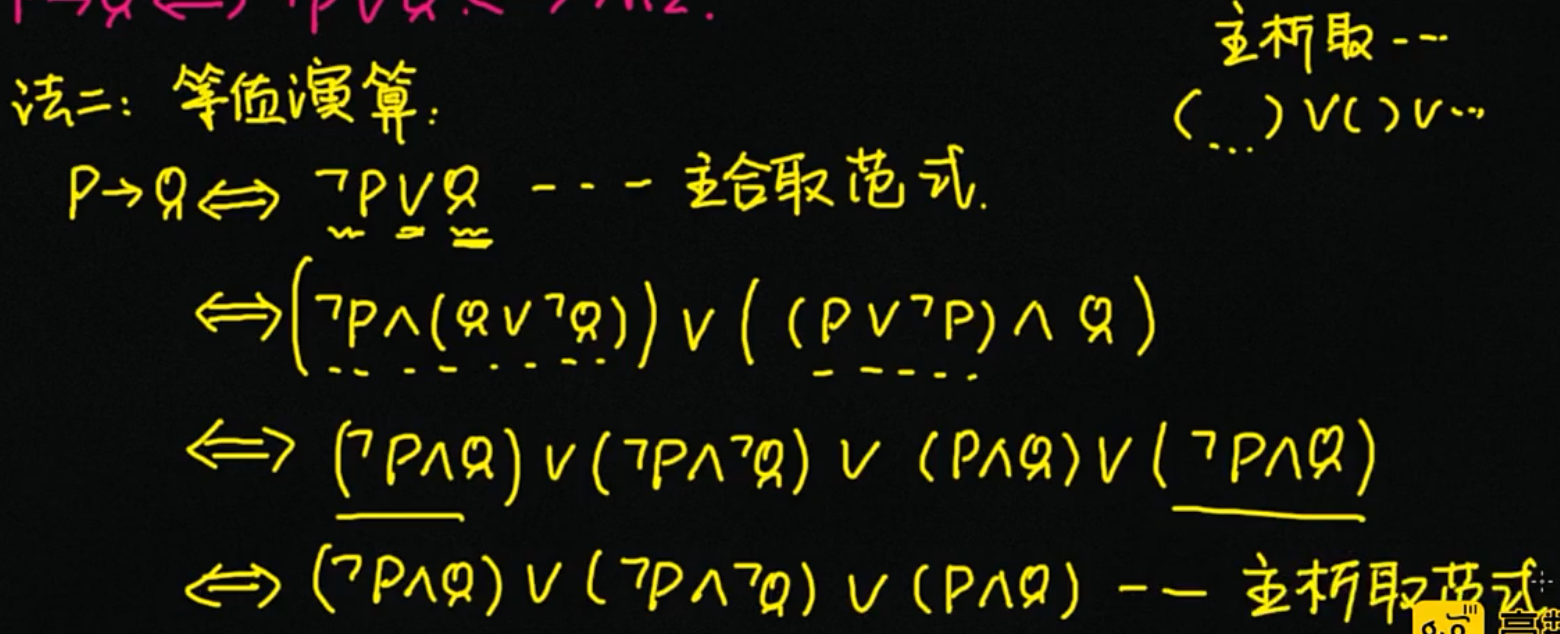 主析取---
法二：等值演算：
(...)∨()∨...
P→Q⇔¬P∨Q ---主合取范式.
⇔(¬P∧(Q∨¬Q))∨((P∨¬P)∧Q)
⇔(¬P∧Q)∨(¬P∧¬Q)∨(P∧Q)∨(¬P∧Q)
⇔(¬P∧Q)∨(¬P∧¬Q)∨(P∧Q)--主析取范式